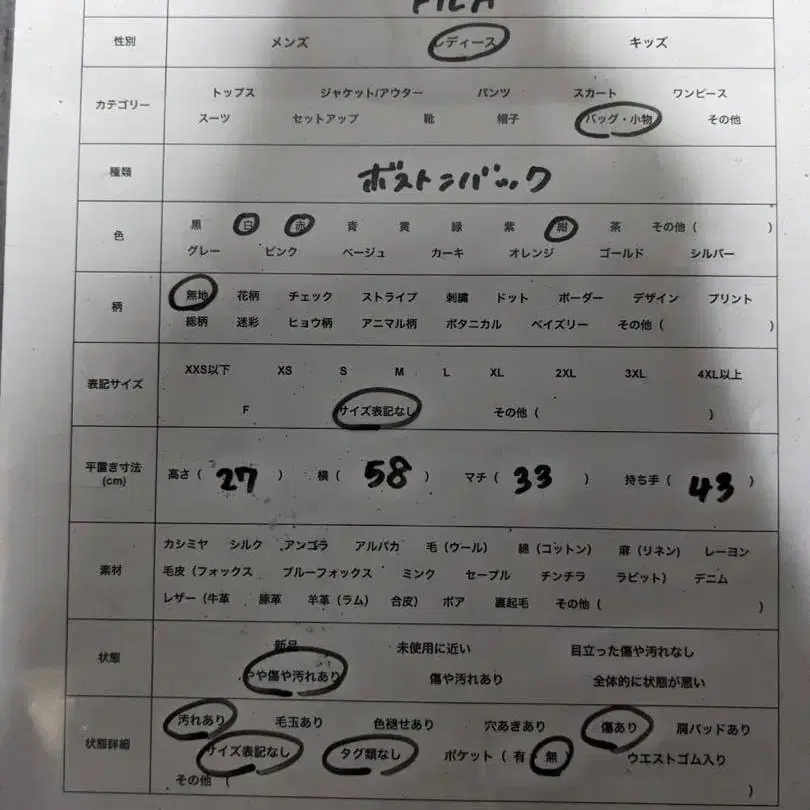 FILA
性別 メンズ レディース キッズ
カテゴリー トップス ジャケット/アウター パンツ スカート ワンピース
スーツ セットアップ 靴 帽子 バッグ・小物 その他
種類 ボストンバック
色 黒 白 赤 青 黄 緑 紫 紺 茶 その他( )
グレー ピンク ベージュ カーキ オレンジ ゴールド シルバー
柄 無地 花柄 チェック ストライプ 刺繍 ドット ボーダー デザイン プリント
総柄 迷彩 ヒョウ柄 アニマル柄 ボタニカル ペイズリー その他( )
表記サイズ XXS以下 XS S M L XL 2XL 3XL 4XL以上
F サイズ表記なし その他( )
平置き寸法(cm) 高さ( 27 ) 横( 58 ) マチ( 33 ) 持ち手( 43 )
素材 カシミヤ シルク アンゴラ アルパカ 毛(ウール) 綿(コットン) 麻(リネン) レーヨン
毛皮(フォックス ブルーフォックス ミンク セーブル チンチラ ラビット) デニム
レザー(牛革 豚革 羊革(ラム) 合皮) ボア 裏起毛 その他( )
状態 新品 未使用に近い 目立った傷や汚れなし
やや傷や汚れあり 傷や汚れあり 全体的に状態が悪い
状態詳細 汚れあり 毛玉あり 色褪せあり 穴あきあり 傷あり 肩パッドあり
サイズ表記なし タグ類なし ポケット( 有 無 ) ウエストゴム入り
その他( )